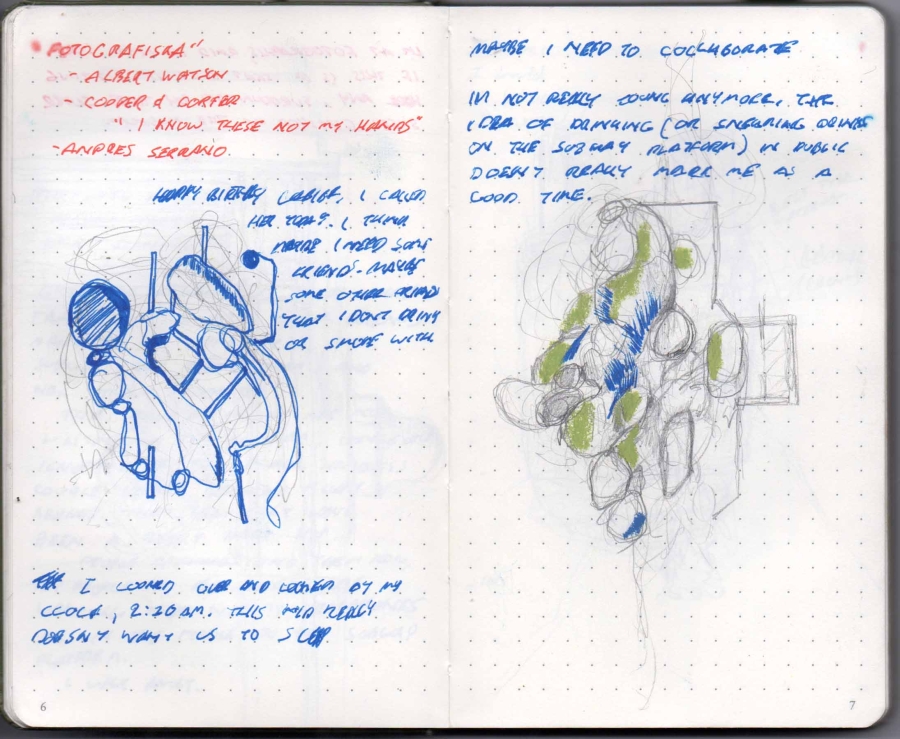 FOTOGRAFISKA"
- ALBERT WATSON
- COOPER & GORFER
" I KNOW THESE NOT MY HANDS"
- ANDRES SERRANO
HAPPY BIRTHDAY I CALLED
HER TODAY. I THINK
MAYBE I NEED SOME
FRIENDS - MAYBE
SOME OTHER FRIENDS
THAT I DON'T DRINK
OR SMOKE WITH
I LOOKED OVER AND LOOKED AT MY
CLOCK, 2:20 AM. THIS REALLY
DOESN'T WANT US TO SLEEP
6
MAYBE I NEED TO COLLABORATE
IM NOT REALLY YOUNG ANYMORE, THE
IDEA OF DRINKING (OR SNEAKING DRINKS
ON THE SUBWAY PLATFORM) IN PUBLIC
DOESN'T REALLY MARK ME AS A
GOOD TIME.
7